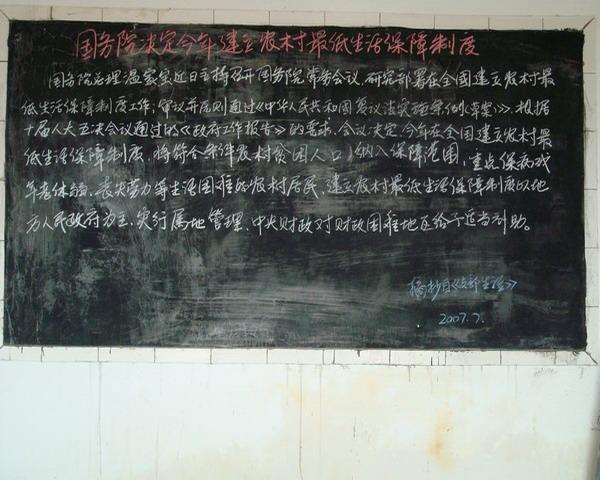 国务院决定今年建立农村最低生活保障制度
国务院总理温家宝近日主持召开国务院常务会议，研究部署在全国建立农村最
低生活保障制度工作，审议并原则通过《中华人民共和国复议法实施条例（草案）》。根据
十届人大五次会议通过的《政府工作报告》的要求，会议决定，今年在全国建立农村最
低生活保障制度，将符合条件农村贫困人口纳入保障范围，重点保病残
年老体弱、丧失劳力等生活困难的农村居民，建立农村最低生活保障制度以地
方人民政府为主，实行属地管理，中央财政对财政困难地区给予适当补助。
摘抄自《支部生活》
2007.7.